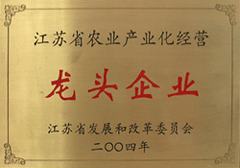 江苏省农业产业化经营
龙头企业
江苏省发展和改革委员会
二〇〇四年